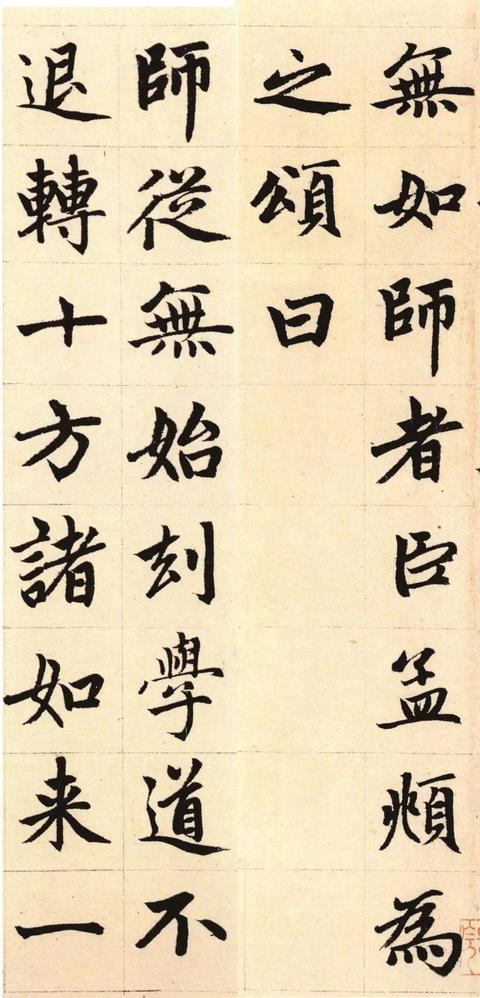 無如師者臣孟頫為
之頌曰
師從無始刼學道不
退轉十方諸如来一